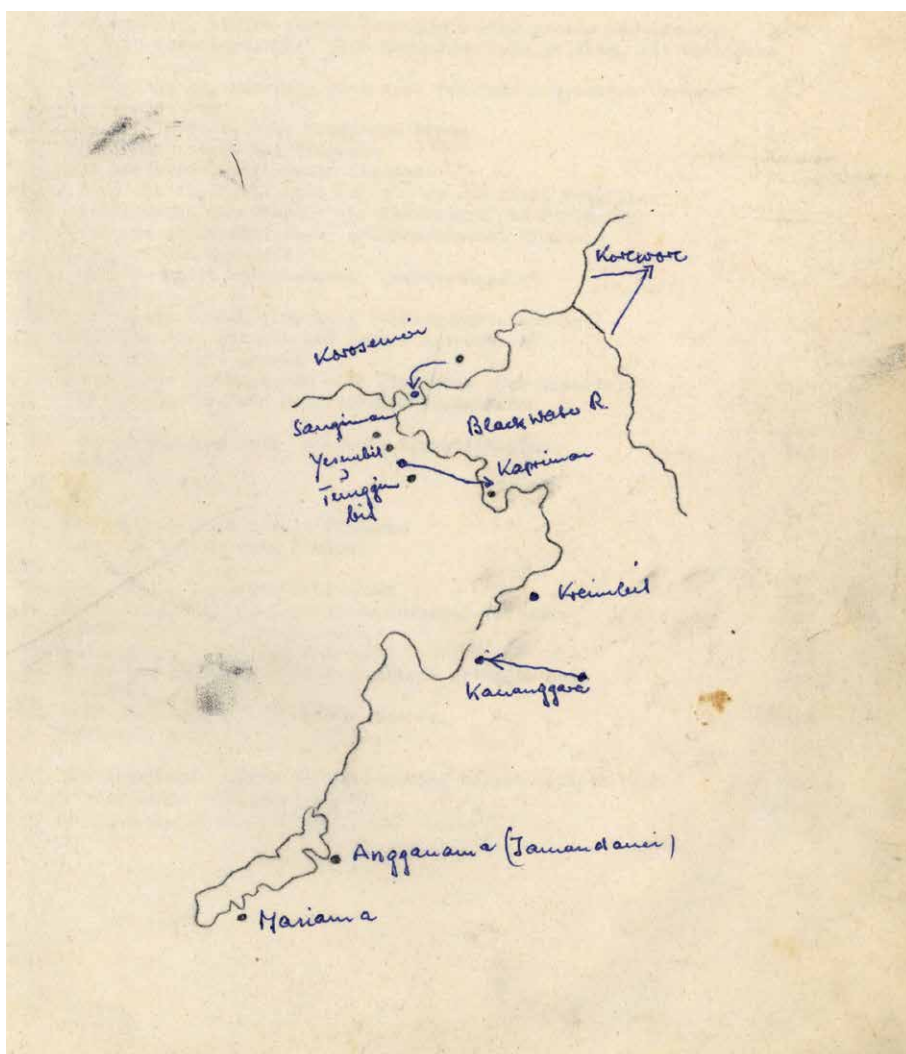 Korewore
Korosemeri
Sangriman
Black Water R.
Yesimbit
Kapriman
Tunggim
bit
Kreimbit
Kananggara
Angganama (Jamandanei)
Mariama